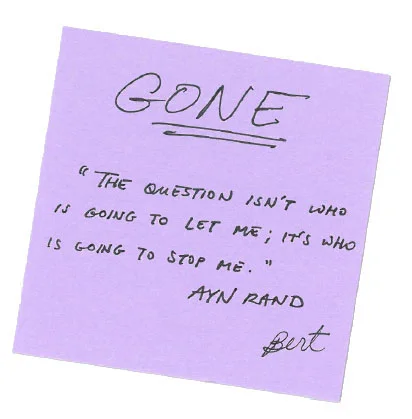 GONE
"THE QUESTION ISN'T WHO
IS GOING TO LET ME; IT'S WHO
IS GOING TO STOP ME."
AYN RAND
Bert